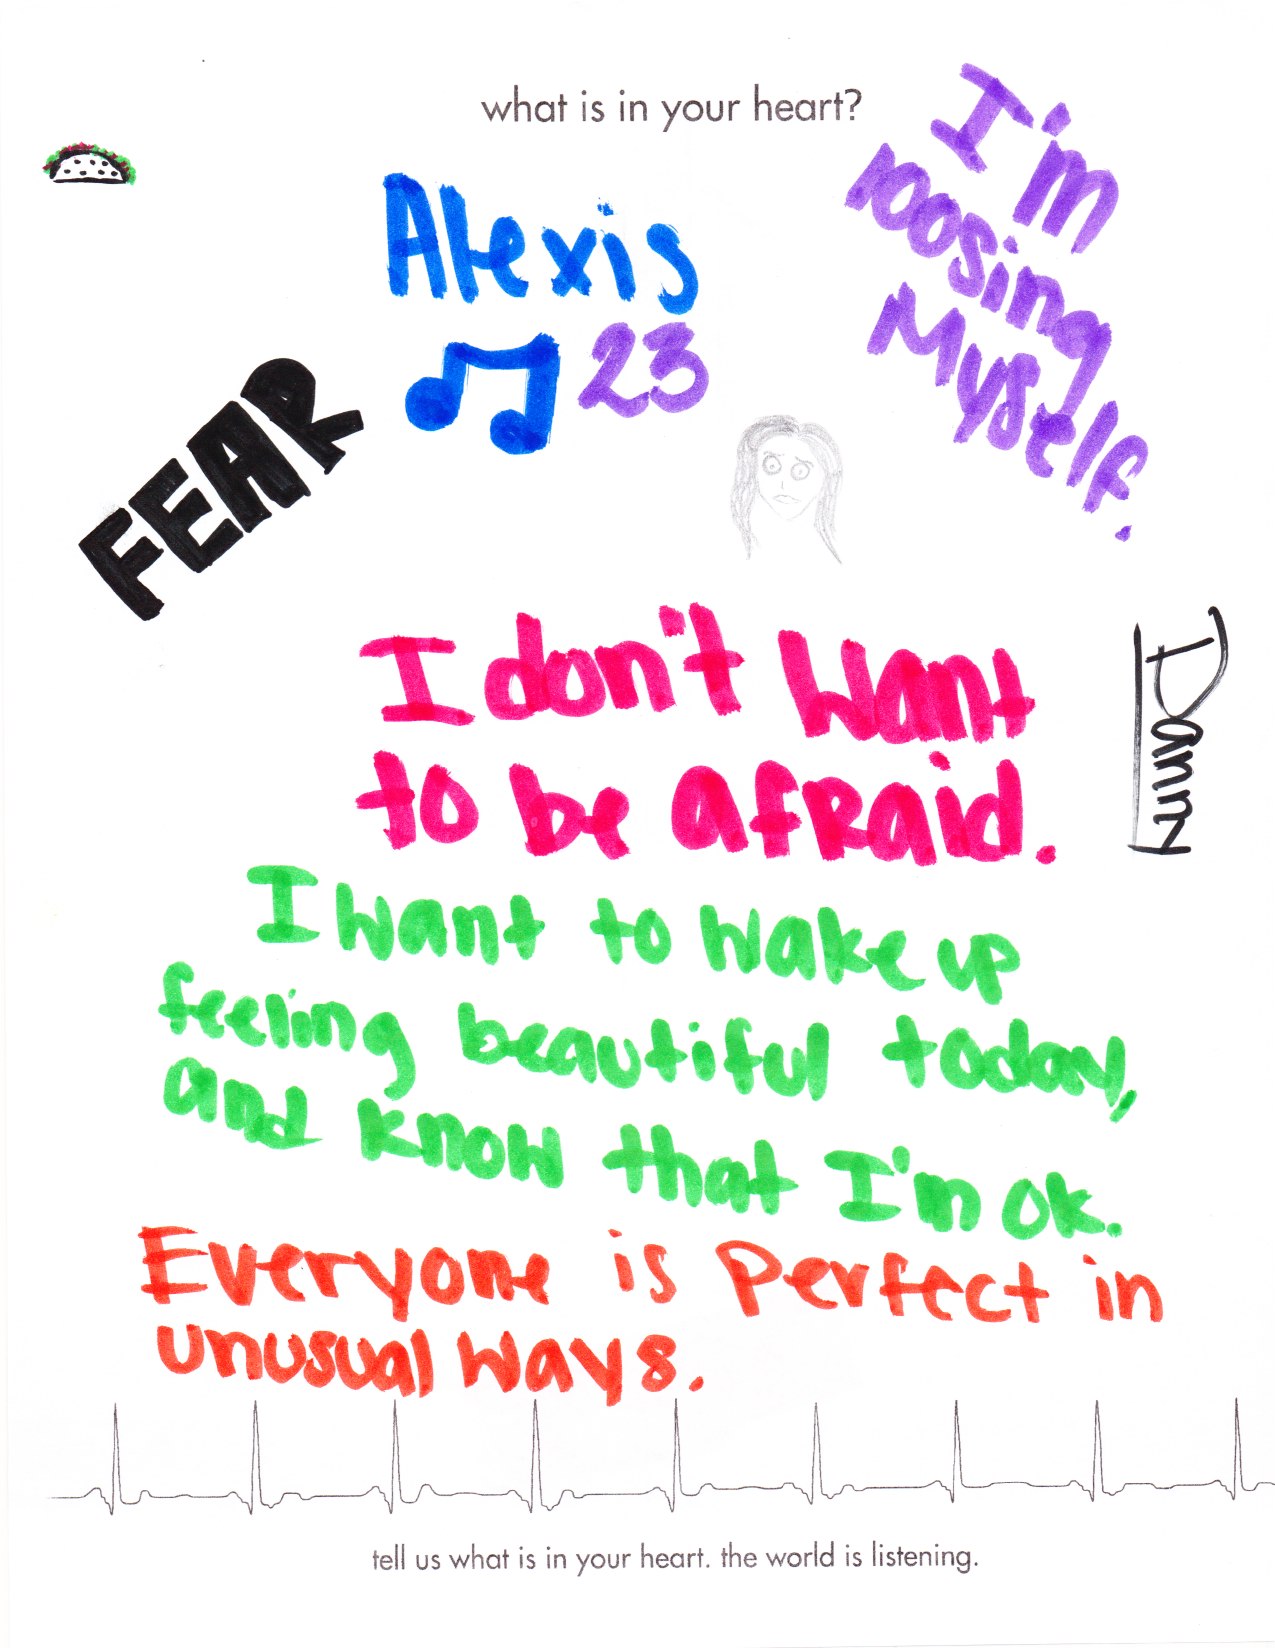 what is in your heart?
I'm
loosing
Myself.
Alexis
23
FEAR
I don't want
to be afraid.
Danny
I want to wake up
feeling beautiful today,
and know that I'm ok.
Everyone is Perfect in
unusual ways.
tell us what is in your heart. the world is listening.